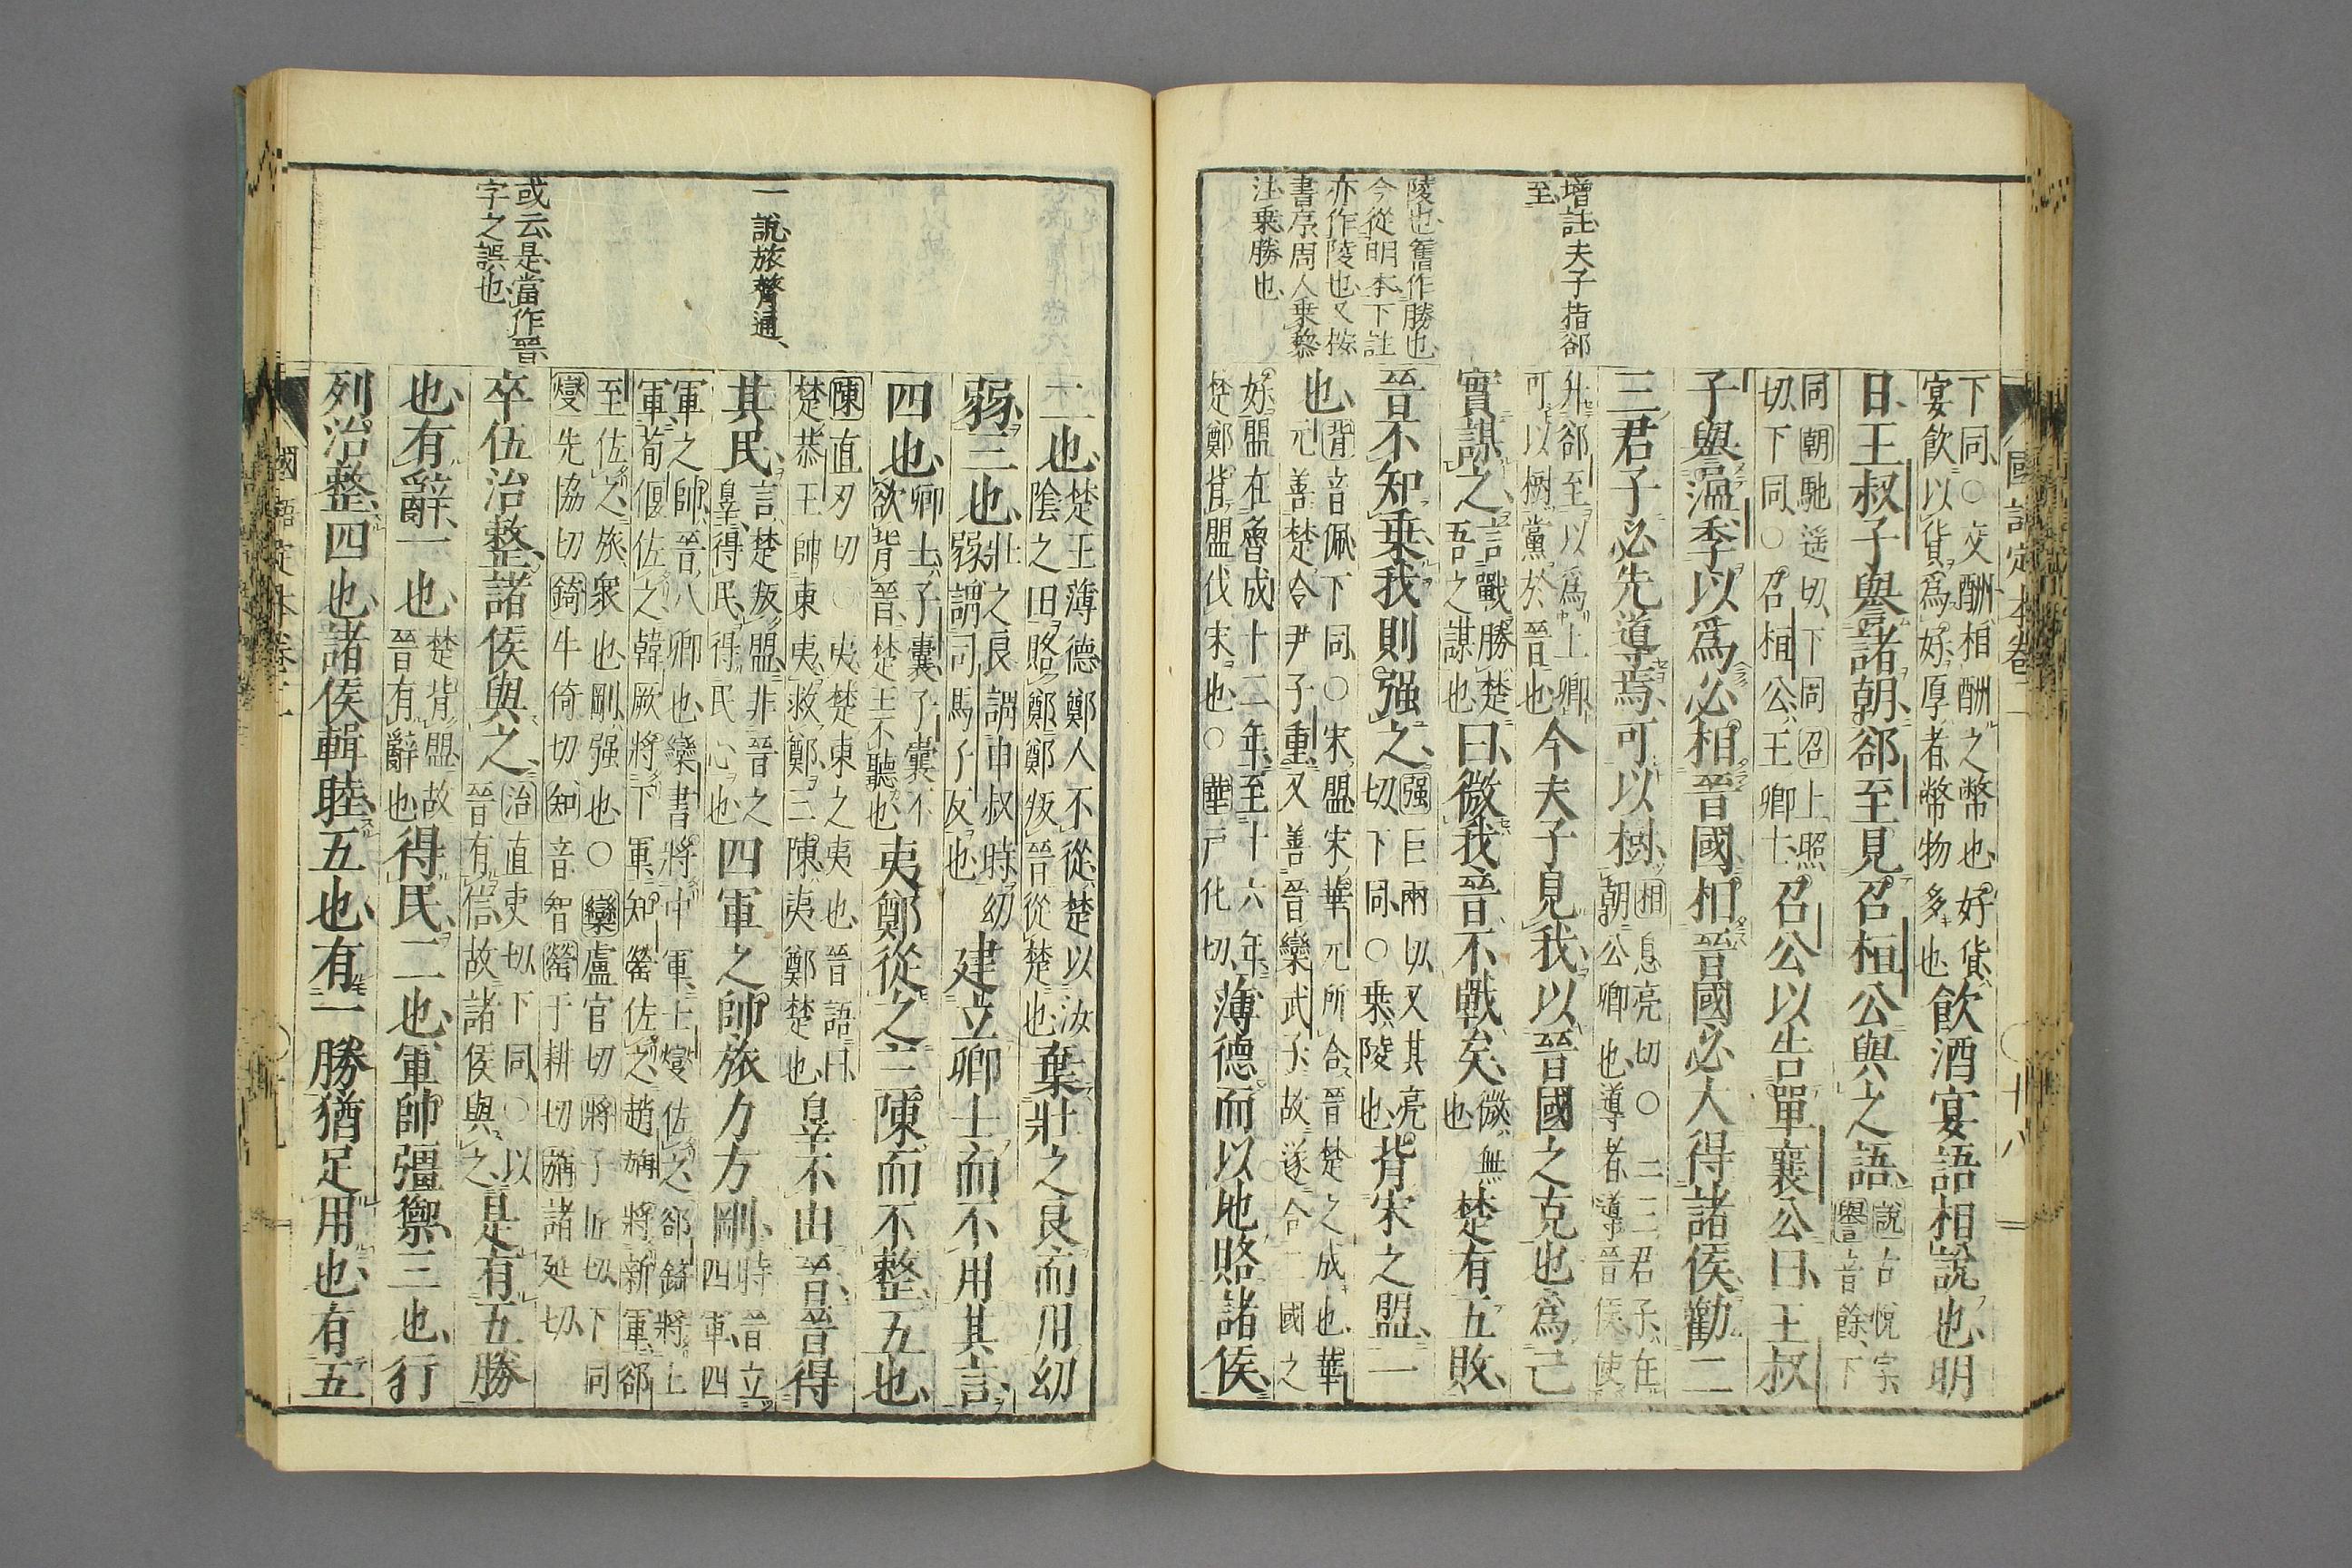 國語定本卷二
十八
增註夫子指郤
至
陵也舊作勝也
今從明本下註
亦作陵也又按
書序周人乘黎
注乘勝也
下同○交酬相酬之幣也好貨
宴飲以貨爲好厚者幣物多也飲酒宴語相說也明
日王叔子譽諸朝郤至見召桓公與之語說古悅字
譽音餘下
同朝馳遥切下同召上照
切下同○召桓公王卿士召公以告單襄公曰王叔
子譽溫季以爲必相晉國相晉國必大得諸侯勸二
三君子必先導焉可以樹相息亮切○二三君子在
朝公卿也導者導晉侯使
升郤至以爲上卿
可以樹黨於晉也今夫子見我以晉國之克也爲己
實謀之言戰勝楚
吾之謀也曰微我晉不戰矣微無
也楚有五敗
晉不知乘我則强之强巨兩切又其亮
切下同○乘陵也背宋之盟一
也背音佩下同○宋盟宋華元所合晉楚之成也華
元善楚令尹子重又善晉欒武子故遂合二國之
好盟在魯成十二年至十六年
楚鄭背盟伐宋也○華戸化切薄德而以地賂諸侯
一說旅膂通
或云是當作晉
字之誤也
二也楚王薄德鄭人不從楚以汝
陰之田賂鄭鄭叛晉從楚也棄壯之良而用幼
弱三也壯之良謂申叔時幼
弱謂司馬子反也建立卿士而不用其言
四也卿士子囊子囊不
欲背晉楚王不聽也夷鄭從之三陳而不整五也
陳直刃切○夷楚東之夷也晉語曰
楚恭王帥東夷救鄭三陳夷鄭楚也辠不由晉晉得
其民言楚叛盟非晉之
辠得民得民心也四軍之帥旅力方剛時晉立
四軍四
軍之帥晉八卿也欒書將中軍士燮佐之郤錡將上
軍荀偃佐之韓厥將下軍知罃佐之趙旃將新軍郤
至佐之旅衆也剛强也○欒盧官切將子匠切下同
燮先協切錡牛倚切知音智罃于耕切旃諸延切
卒伍治整諸侯與之治直吏切下同○以
晉有信故諸侯與之是有五勝
也有辭一也楚背盟故
晉有辭也得民二也軍帥彊禦三也行
列治整四也諸侯輯睦五也有一勝猶足用也有五
國語定本卷二